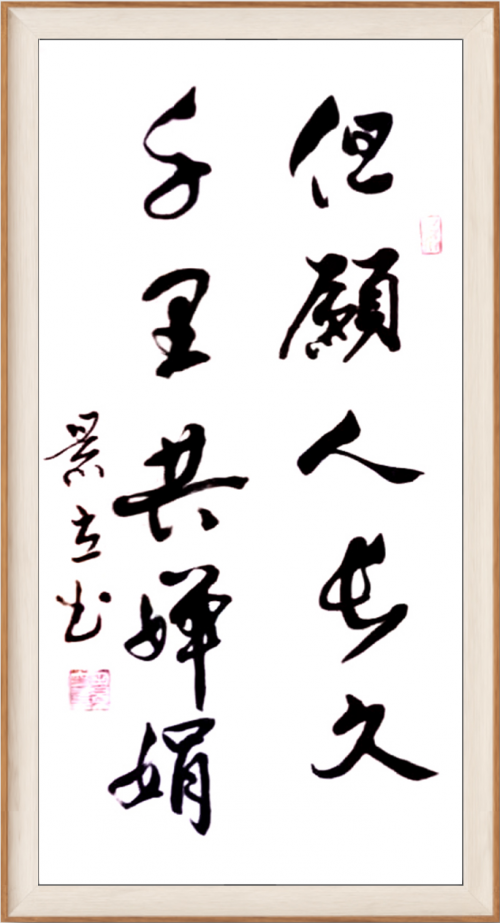 但願人長久
千里共嬋娟
景立书